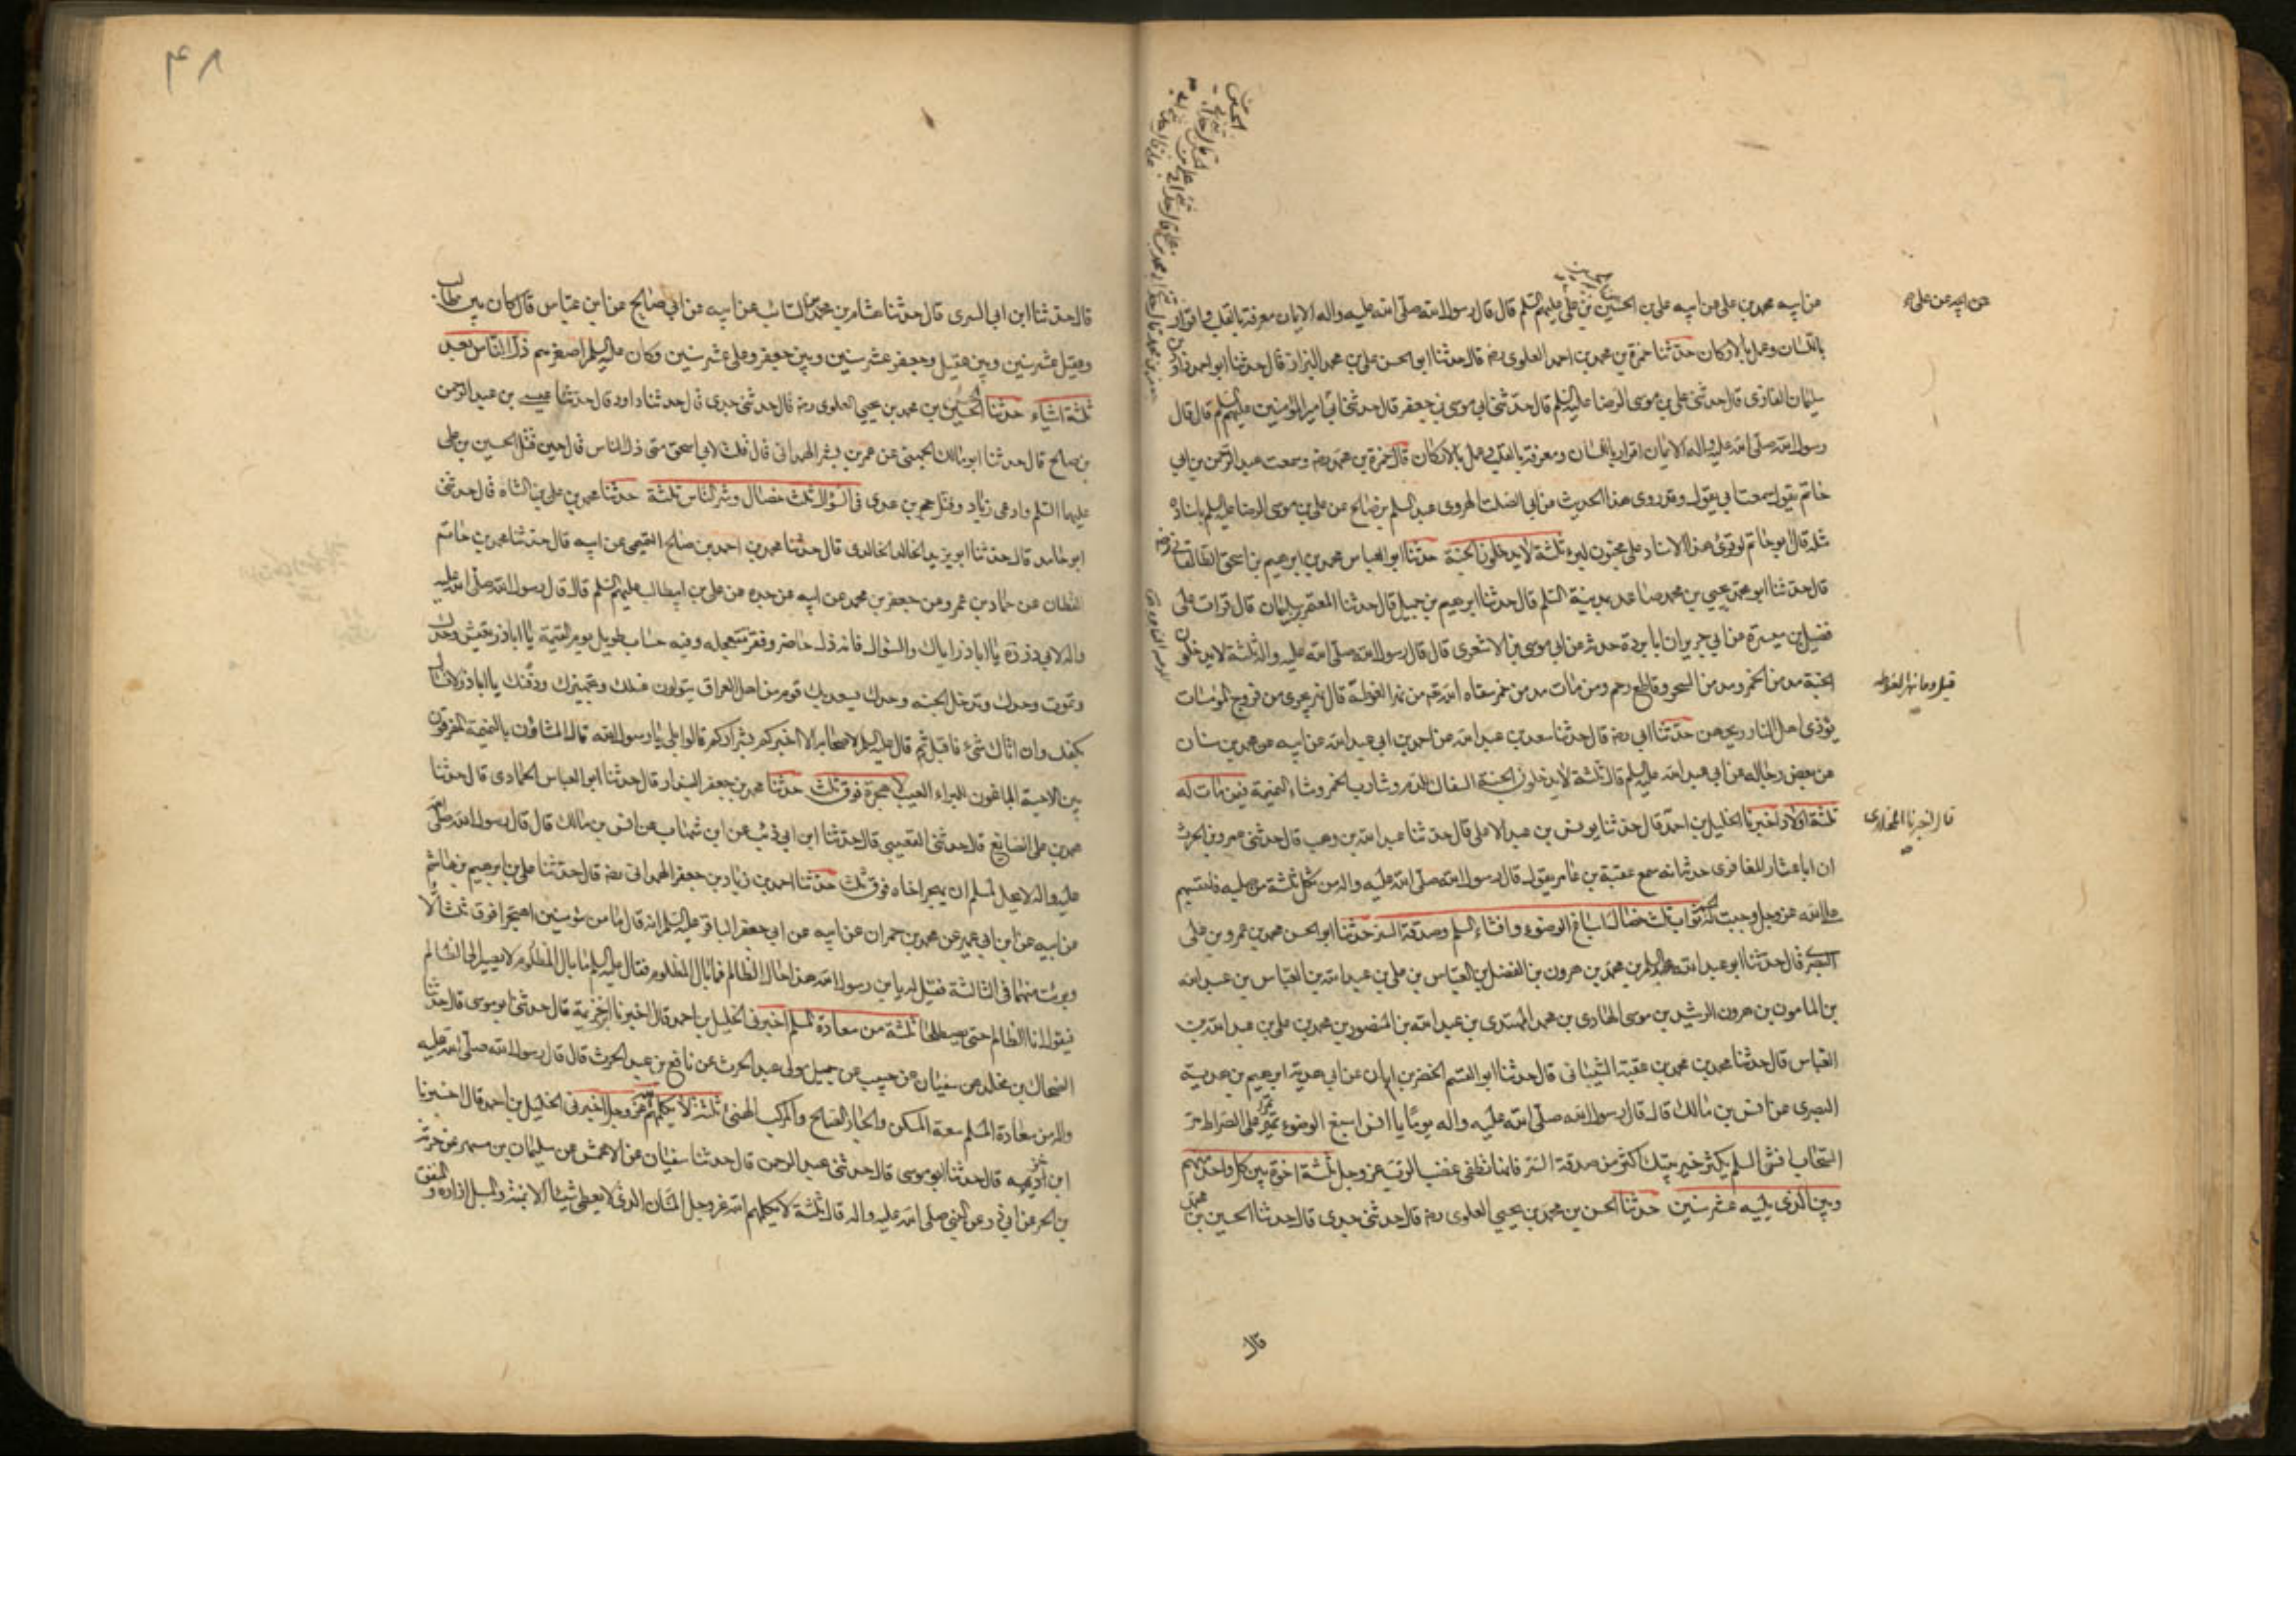 من ابيه محمد بن علي عن ابيه علي بن الحسين بن علي عليهم السلم قال قال رسول الله صلى الله عليه واله الايمان معرفة بالقلب واقرار
باللسان وعمل بالاركان حدثنا حمزة بن محمد بن احمد العلوي رضه قال حدثنا ابو الحسن علي بن محمد البزاز قال حدثنا ابو احمد داود بن
سليمان الغازى قال حدثنى علي بن موسى الرضا عليه السلم قال حدثنى ابي موسى بن جعفر قال حدثنى ابي امير المؤمنين عليهم السلم قال قال
رسول الله صلى الله عليه واله الايمان اقرار باللسان ومعرفة بالقلب وعمل بالاركان قال حمزة بن محمد رضه وسمعت عبد الرحمن بن ابي
حاتم يقول سمعت ابي يقول وقد روى هذا الحديث عن ابي الصلت الهروى عبد السلم بن صالح عن علي بن موسى الرضا عليه السلم باسناده
مثله قال ابو حاتم لو قرئ هذا الاسناد على مجنون لبرء ثلثة لا يدخلون الجنة حدثنا ابو العباس محمد بن ابرهيم بن اسحق الطالقاني رضه
قال حدثنا ابو محمد يحيى بن محمد بن صاعد بمدينة السلم قال حدثنا ابرهيم بن جميل قال حدثنا المعتمر بن سليمان قال قرات على
فضيل بن ميسرة عن ابي جرير ان ابا بردة حدثه عن ابي موسى الاشعرى قال قال رسول الله صلى الله عليه واله ثلثة لا يدخلون
الجنة مدمن الخمر ومدمن السحر وقاطع رحم ومن مات مدمن خمر سقاه الله من نهر الغوطة قال نهر يجرى من فروج المومسات
يؤذى اهل النار ريحهن حدثنا ابي رضه قال حدثنا سعد بن عبد الله عن احمد بن ابي عبد الله عن ابيه عن محمد بن سنان
عن بعض رجاله عن ابي عبد الله عليه السلم قال ثلثة لا يدخلون الجنة السفاك للدم وشارب الخمر ومشاء النميمة فيمن مات له
ثلثة اولاد اخبرنا الخليل بن احمد قال حدثنا يونس بن عبد الاعلى قال حدثنا عبد الله بن وهب قال حدثنى عمرو بن الحرث
ان ابا عشانه المعافرى حدثه انه سمع عقبة بن عامر يقول قال رسول الله صلى الله عليه واله من ثكل ثلثة من صلبه فاحتسبهم
على الله عز وجل وجبت له الجنة ثواب ثلث خصال اسباغ الوضوء وافشاء السلم وصدقة السر حدثنا ابو الحسن محمد بن عمرو بن علي
البصرى قال حدثنا ابو عبد الله عبد السلم بن محمد بن هرون بن الفضل بن العباس بن علي بن عبد الله بن العباس بن عبد الله
بن المامون بن هرون الرشيد بن موسى الهادى بن محمد المهتدى بن عبد الله بن المنصور بن محمد بن علي بن عبد الله بن
العباس قال حدثنا محمد بن محمد بن عقبة الشيبانى قال حدثنا ابو القسم الخضر بن ابان عن ابي هدية ابرهيم بن هدية
البصرى عن انس بن مالك قال قال رسول الله صلى الله عليه واله يوما يا انس اسبغ الوضوء تمر على الصراط مر
السحاب افش السلم يكثر خير بيتك اكثر من صدقة السر فانها تطفئ غضب الرب عز وجل ثلثة اخوة بين كل واحد منهم
وبين الذى يليه عشر سنين حدثنا الحسن بن محمد بن يحيى العلوى رضه قال حدثنى جدى قال حدثنا الحسين بن محمد
عن ابيه عن علي
قال اخبرنا المخلدى
قال
۴۸
قال حدثنا ابن ابي السرى قال حدثنا هشام بن محمد بن السائب عن ابيه عن ابي صالح عن ابن عباس قال كان بين طالب
وعقيل عشر سنين وبين عقيل وجعفر عشر سنين وبين جعفر وعلى عشر سنين وكان عليه السلم اصغرهم ذل الناس بعد
ثلثة اشياء حدثنا الحسين بن محمد بن يحيى العلوى رضه قال حدثنى جدى قال حدثنا داود قال حدثنا عيسى بن عبد الرحمن
بن صالح قال حدثنا ابو مالك الجهنى عن عمر بن بشر الهمدانى قال قلت لابي اسحق متى ذل الناس قال حين قتل الحسين بن على
عليهما السلم وادعى زياد وقتل حجر بن عدى فى السؤال ثلث خصال وشر الناس ثلثة حدثنا محمد بن علي بن الشاه قال حدثنى
ابو حامد قال حدثنا ابو يزيد احمد بن خالد الخالدى قال حدثنا محمد بن احمد بن صالح التميمى عن ابيه قال حدثنا محمد بن حاتم
القطان عن حماد بن عمرو عن جعفر بن محمد عن ابيه عن جده عن علي بن ابيطالب عليهم السلم قال قال رسول الله صلى الله عليه
واله لابي ذر ره يا اباذر اياك والسؤال فانه ذل حاضر وفقر تتعجله وفيه حساب طويل يوم القيمة يا اباذر تعيش وحدك
وتموت وحدك وتدخل الجنة وحدك يسعد بك قوم من اهل العراق يتولون غسلك وتجهيزك ودفنك يا اباذر لا تسئل
بكفك وان اتاك شئ فاقبله ثم قال عليه السلم لاصحابه الا اخبركم بشراركم قالوا بلى يا رسول الله قال المشاؤن بالنميمة المفرقون
بين الاحبة الباغون للبراء العيب لا هجرة فوق ثلث حدثنا محمد بن جعفر البندار قال حدثنا ابو العباس الحمادى قال حدثنا
محمد بن على الصايغ قال حدثنى القعنبى قال حدثنا ابن ابي ذئب عن ابن شهاب عن انس بن مالك قال قال رسول الله صلى الله
عليه واله لا يحل لمسلم ان يهجر اخاه فوق ثلث حدثنا احمد بن زياد بن جعفر الهمدانى رضه قال حدثنا على بن ابرهيم بن هاشم
عن ابيه عن ابن ابي عمير عن محمد بن حمران عن ابيه عن ابي جعفر الباقر عليه السلم انه قال ما من مؤمنين اهتجرا فوق ثلث الا
وبرئت منهما فى الثالثة فقيل له يا ابن رسول الله هذا حال الظالم فما بال المظلوم فقال عليه السلم ما بال المظلوم لا يصير الى الظالم
فيقول انا الظالم حتى يصطلحا ثلثة من سعادة المسلم اخبرنى الخليل بن احمد قال اخبرنا ابن خزيمة قال حدثنى ابو موسى قال حدثنا
الضحاك بن مخلد عن سفيان عن حبيب عن جميل مولى عبد الحرث عن نافع بن عبد الحرث قال قال رسول الله صلى الله عليه
واله من سعادة المسلم سعة المسكن والجار الصالح والمركب الهنئ ثلثة لا يكلمهم الله عز وجل اخبرنى الخليل بن احمد قال اخبرنا
ابن خزيمه قال حدثنا ابو موسى قال حدثنى عبد الرحمن قال حدثنا سفيان عن الاعمش عن سليمان بن مسهر عن خرشة
بن الحر عن ابي ذر عن النبى صلى الله عليه واله قال ثلثة لا يكلمهم الله عز وجل المنان الذى لا يعطى شيئا الا بمنة والمسبل ازاره و المنفق